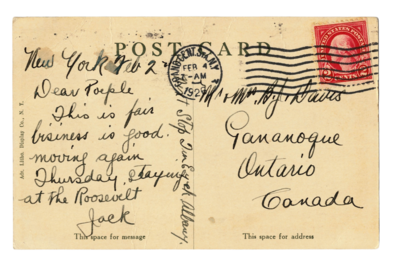 POST CARD
New York Feb 2
Dear People
This is fair
business is good.
moving again
Thursday, staying
at the Roosevelt
Jack
This space for message
FEB 4
AM
192
UNITED STATES POSTAGE
2 CENTS 2
Mr & Mrs. B. J. Davis
Gananoque
Ontario
Canada
This space for address
Albany.
Art. Litho. Display Co., N. Y.